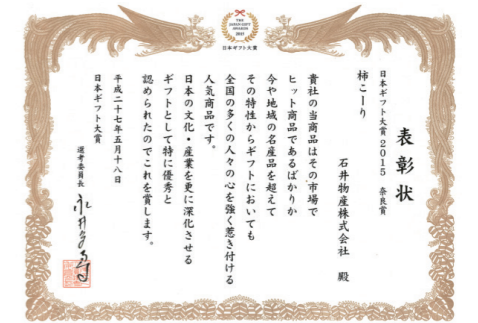 THE
JAPAN GIFT
AWARDS
2015
日本ギフト大賞
表彰状
日本ギフト大賞2015 奈良賞
柿こーり
石井物産株式会社 殿
貴社の当商品はその市場で
ヒット商品であるばかりか
今や地域の名産品を超えて
その特性からギフトにおいても
全国の多くの人々の心を強く惹き付ける
人気商品です。
日本の文化・産業を更に深化させる
ギフトとして特に優秀と
認められたのでこれを賞します。
平成二十七年五月十八日
日本ギフト大賞
選考委員長